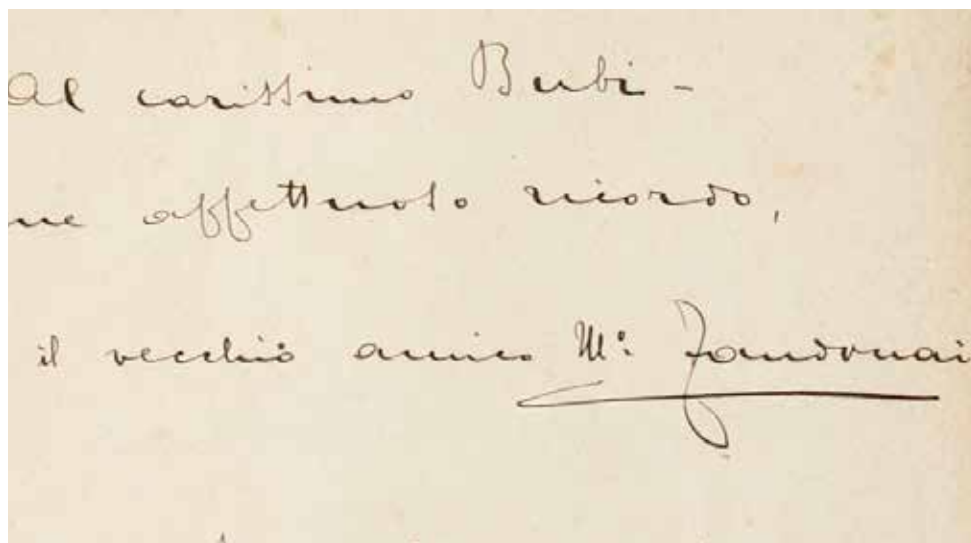 Al carissimo Bubi -
me affettuoso ricordo,
il vecchio amico Mº. Zandonai